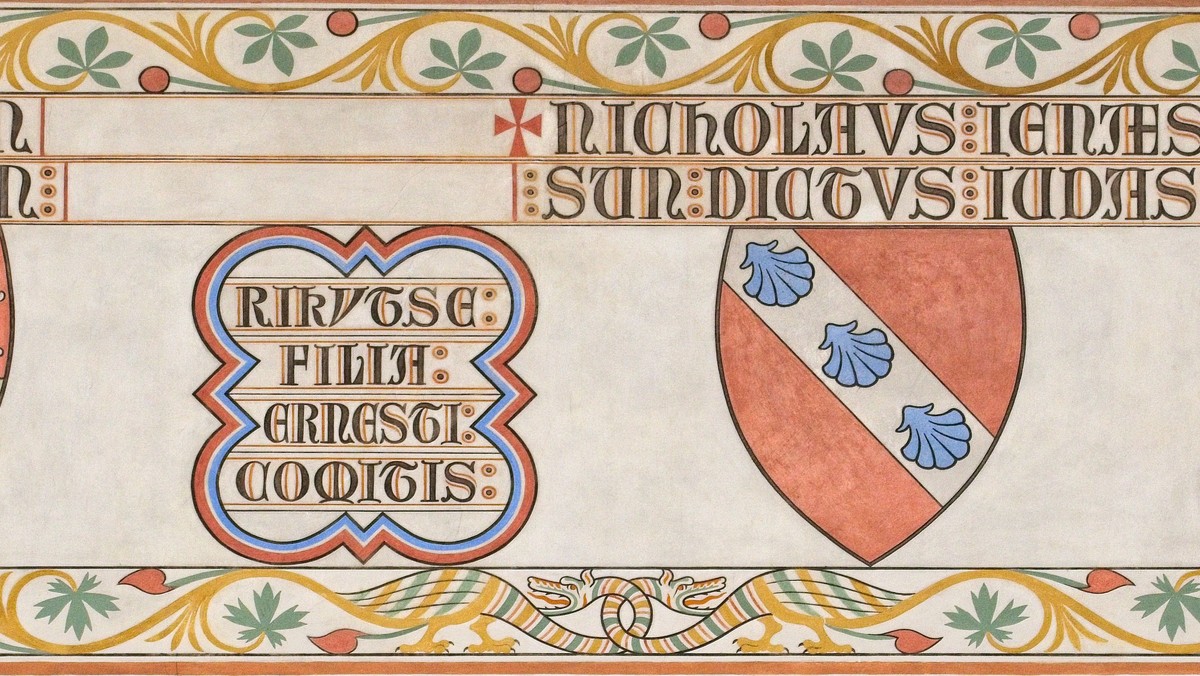 ✠ NICHOLAVS : IENÆS
: SUN : DICTVS : IUDAS
RIKVTSE :
FILIA :
ERNESTI :
COMITIS :